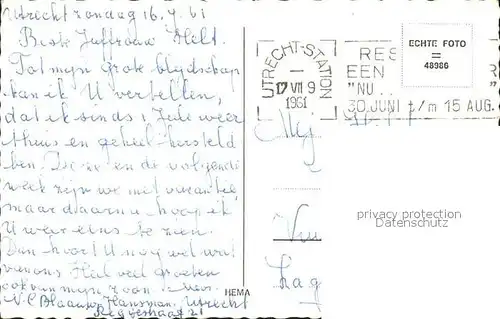 Utrecht zondag 16.7.61
Beste Juffrouw Helt.
Tot mijn grote blydschap
kan ik U vertellen,
dat ik sinds 1 Julie weer
thuis en geheel hersteld
ben. Deze en de volgende
week zijn we met vacantie,
maar daarna hoop ik
U weer eens te zien.
Dan hoort U nog wel wat
van ons Heel veel groeten
ook van mijn zoon.
N.C. Blaauw Hansman. Utrecht
Reggestraat 21
UTRECHT-STATION
17 VII 9
1961
RES
EEN
"NU..
30 JUNI t/m 15 AUG.
ECHTE FOTO
=
48986
Mej
privacy protection
ansichtskarten-center.de
HEMA